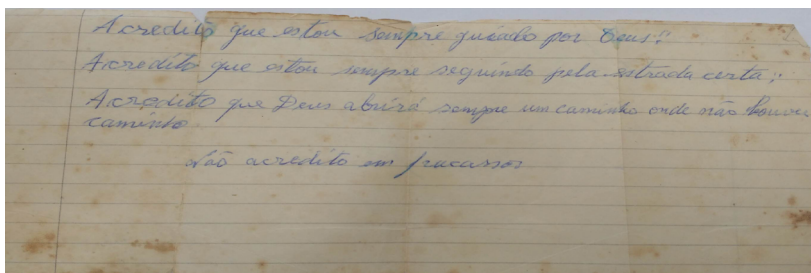 Acredito que estou sempre guiado por Deus;
Acredito que estou sempre seguindo pela estrada certa;
Acredito que Deus abrirá sempre um caminho onde não houver
caminho
Não acredito em fracassos